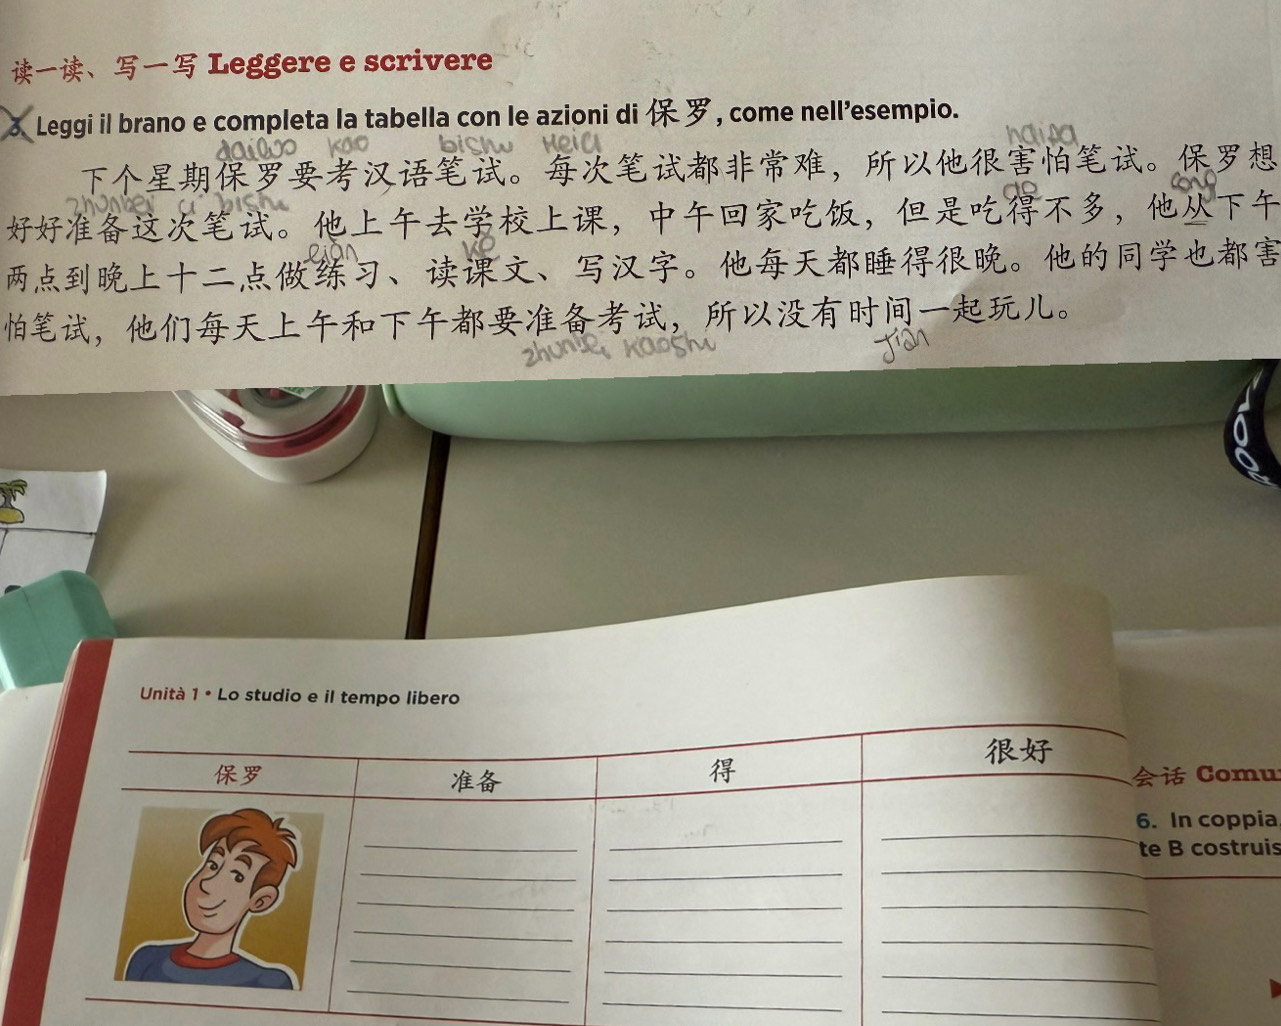 读一读、写一写 Leggere e scrivere
3. Leggi il brano e completa la tabella con le azioni di 保罗, come nell'esempio.
kao bishi
下个星期保罗要考汉语笔试。每次笔试都非常难，所以他很害怕笔试。保罗想
zhunbei ci bishi
好好准备这次笔试。他上午去学校上课，中午回家吃饭，但是吃得不多，他从下午
ke
两点到晚上十二点做练习、读课文、写汉字。他每天都睡得很晚。他的同学也都害
怕笔试，他们每天上午和下午都要准备考试，所以没有时间一起玩儿。
zhunbei kaoshi jiān
Unità 1 • Lo studio e il tempo libero
保罗 准备 得 很好
会话 Comu
6. In coppia
te B costruis